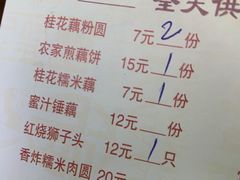 全天供
桂花藕粉圆 7元 2 份
农家煎藕饼 15元 1 份
桂花糯米藕 7元 1 份
蜜汁锤藕 12元 份
红烧狮子头 12元 1 只
香炸糯米肉圆 20元